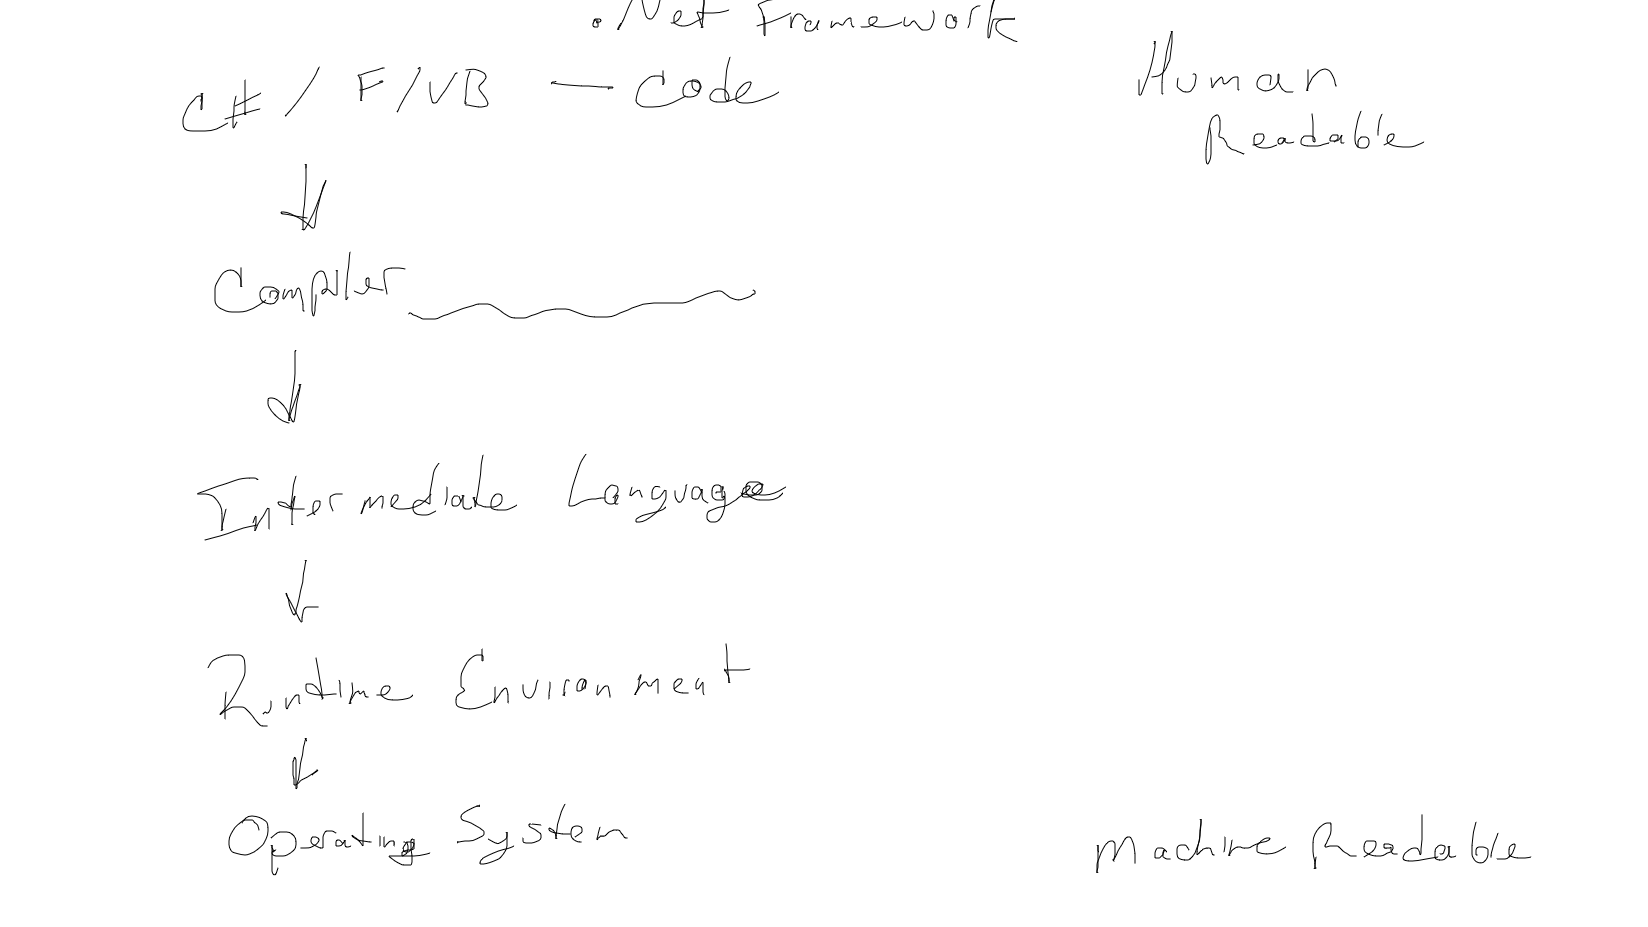 .Net Framework
C# / F/VB — Code
Human
Readable
Compiler
Intermediate Language
Runtime Environment
Operating System
Machine Readable